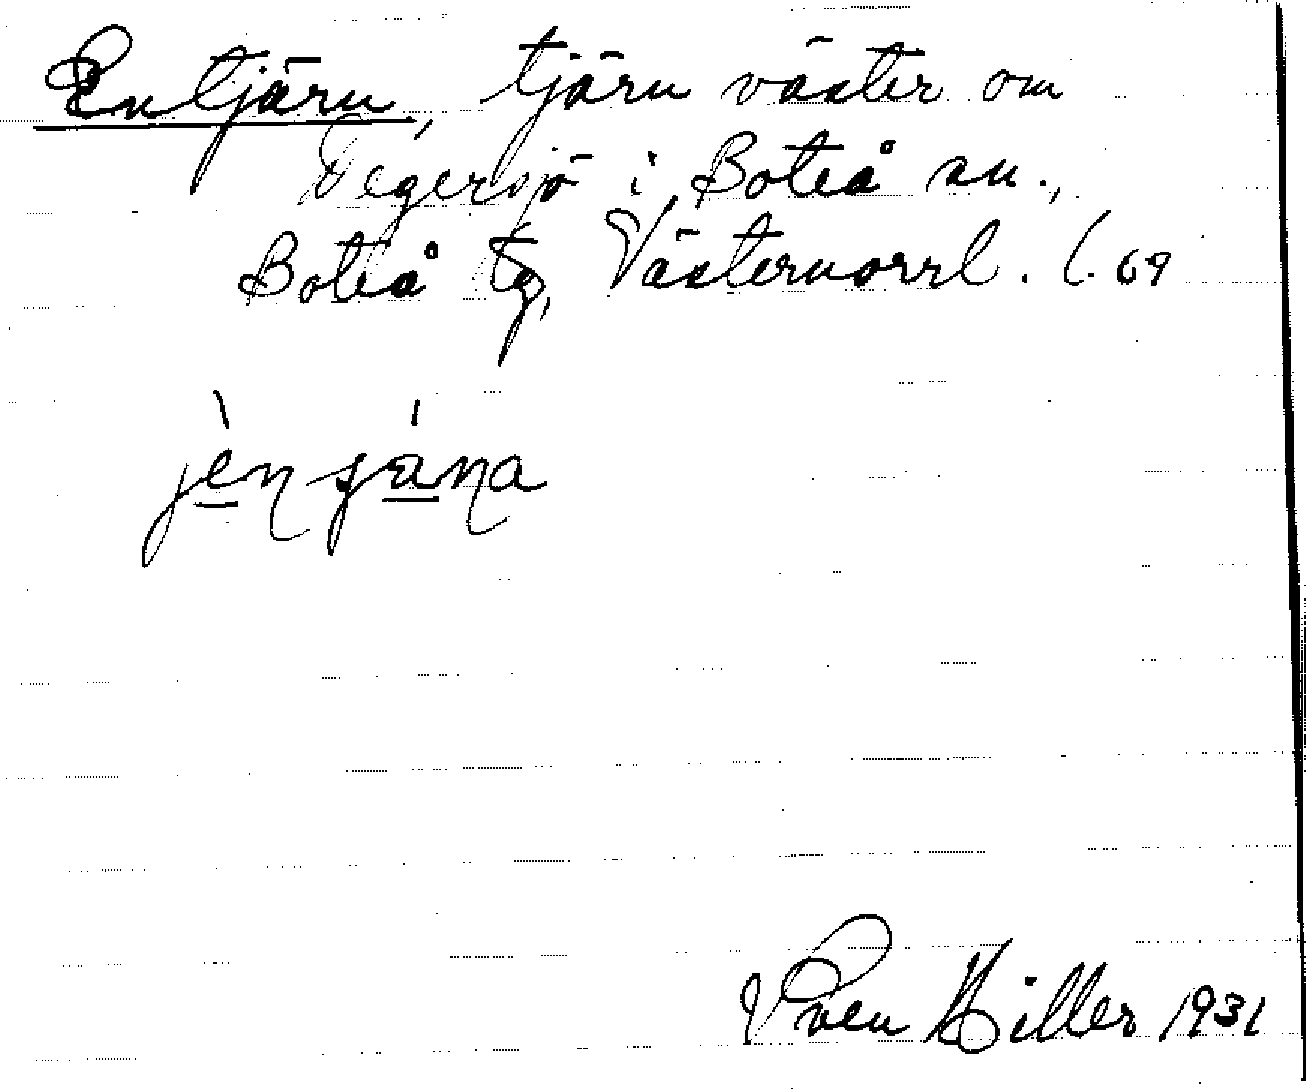 Entjärn, tjärn väster om
Tegersjö i Boteå sn.,
Boteå tg, Västernorrl. l. 69
Sven Hiller 1931